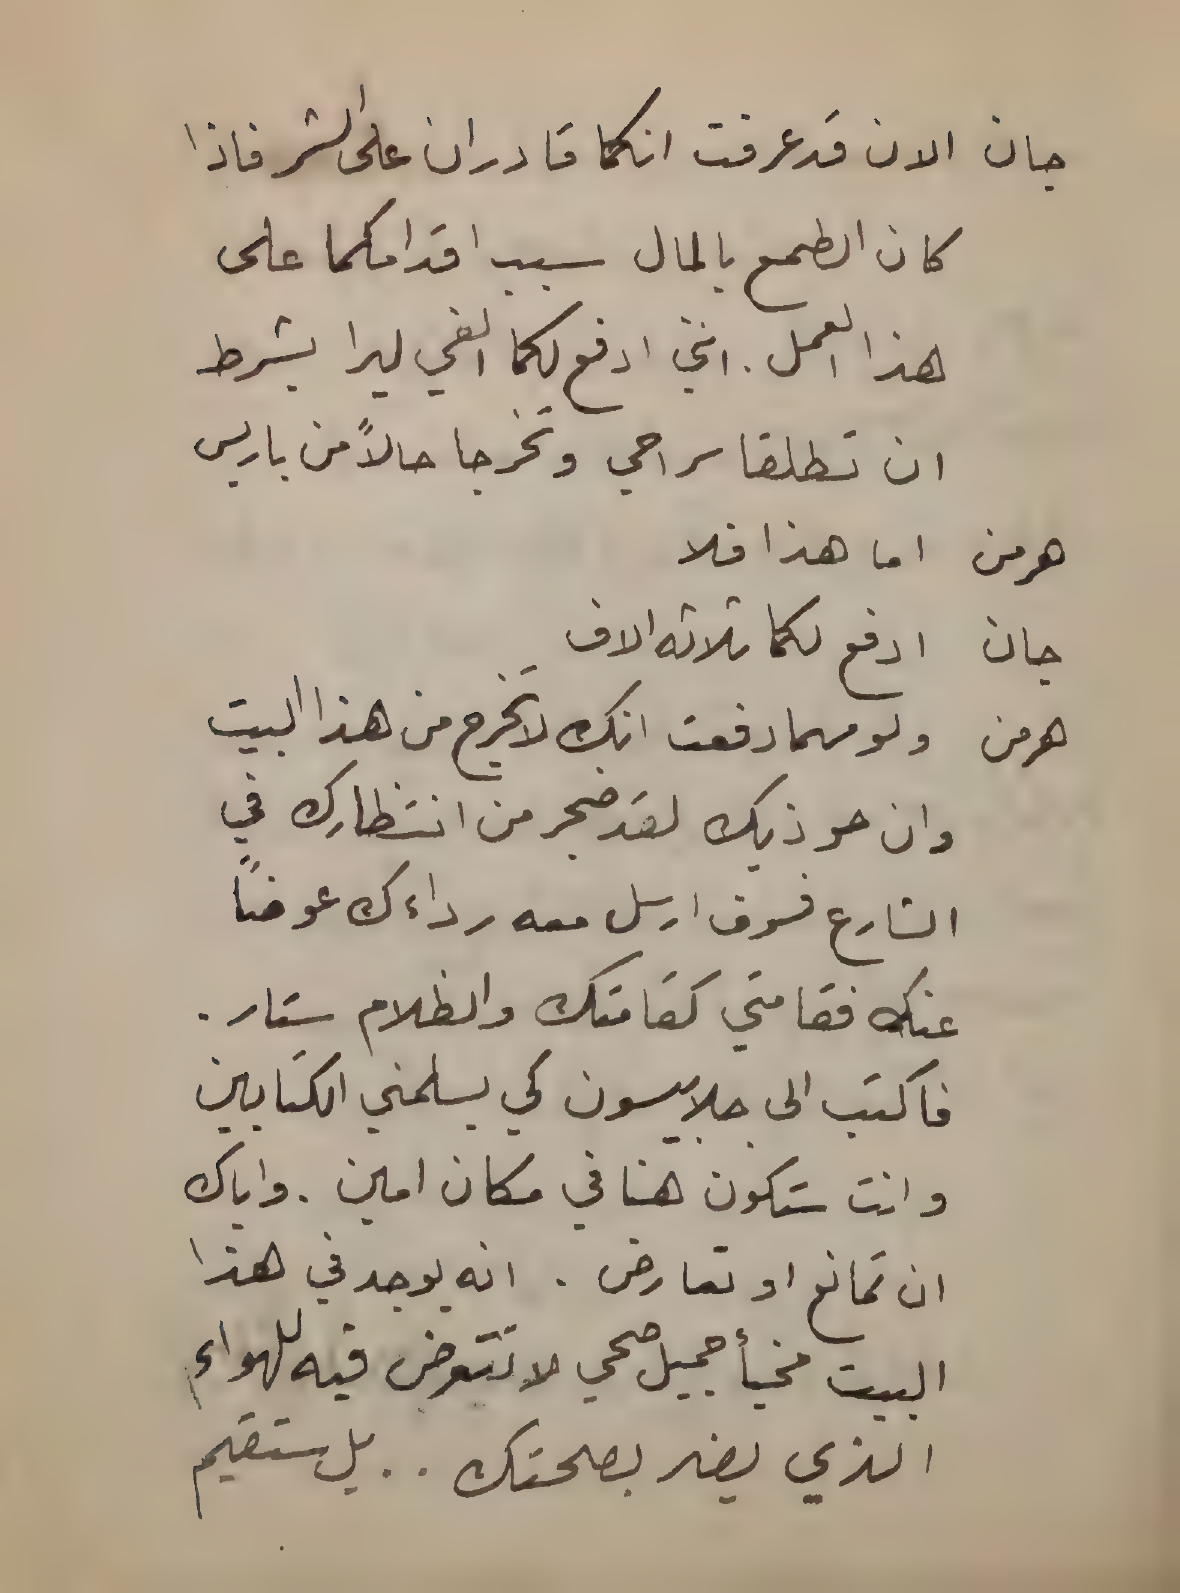 جان الان قد عرفت انكما قادران على الشر فاذا
كان الطمع بالمال سبب اقدامكما على
هذا العمل . انني ادفع لكما الفي ليرا بشرط
ان تطلقا سراحي وتخرجا حالاً من باريس
هرمن اما هذا فلا
جان ادفع لكما ثلاثه الاف
هرمن ولو مهما دفعت انك لا تخرج من هذا البيت
وان حوذيك لقد ضجر من انتظارك في
الشارع فسوف ارسل معه رداءك عوضاً
عنك فقامتي كقامتك والظلام ستار .
فاكتب الى جلابيسون كي يسلمني الكتابين
وانت ستكون هنا في مكان امين . واياك
ان تمانع او تعارض . انه يوجد في هذا
البيت مخبأ جميل صحي لا تتعرض فيه للهواء
الذي يضر بصحتك . . بل ستقيم